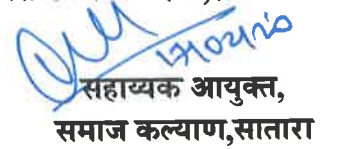 सहाय्यक आयुक्त,
समाज कल्याण,सातारा